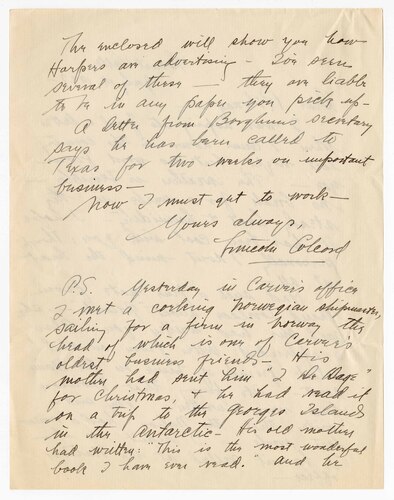 The enclosed will show you how
Harpers are advertising – I've seen
several of these — they are liable
to be in any paper you pick up –
A letter from Borglum's secretary
says he has been called to
Texas for two weeks on important
business –
Now I must get to work –
Yours always,
Lincoln Colcord
P.S. Yesterday in Carver's office
I met a corking Norwegian shipmaster,
sailing for a firm in Norway the
head of which is one of Carver's
oldest business friends – His
mother had sent him "I De Dage"
for Christmas, & he had read it
on a trip to the Georges Islands
in the Antarctic – His old mother
had written: "This is the most wonderful
book I have ever read." and he